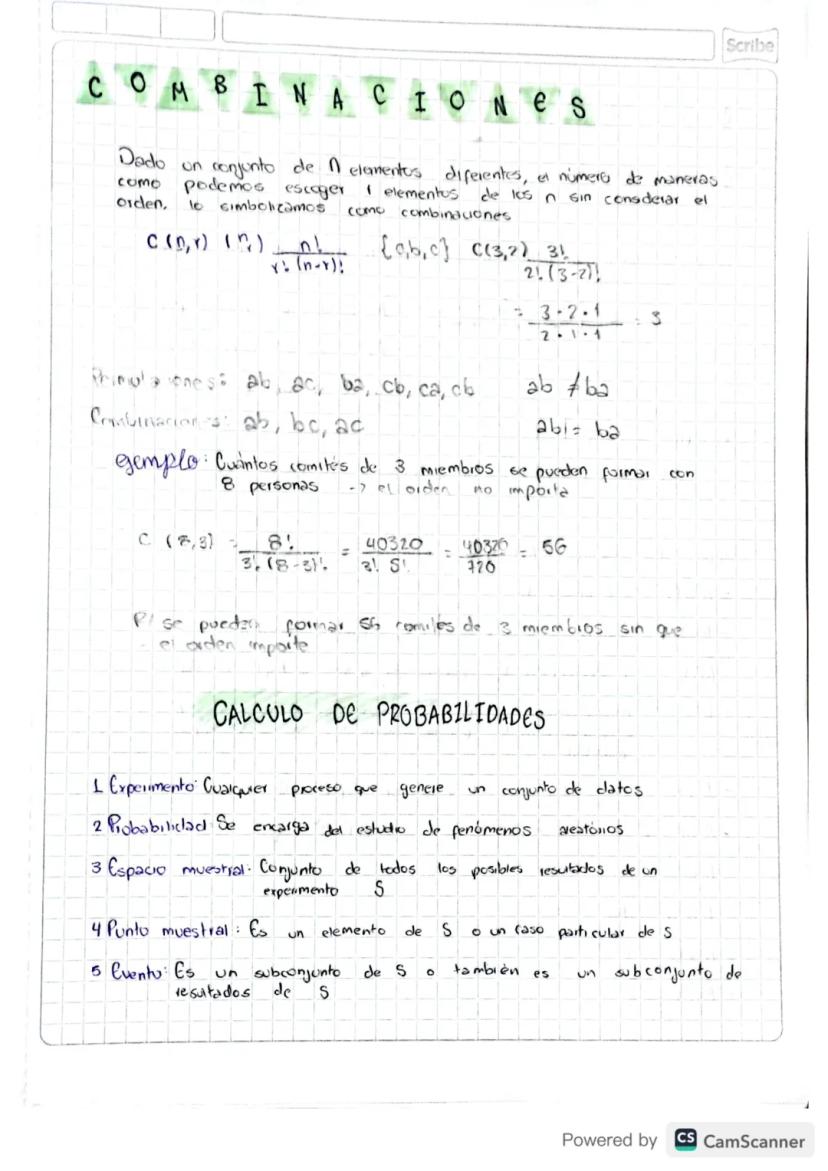 Scribe
COMBINACIONES
Dado un conjunto de n elementos diferentes, el número de maneras
como podemos escoger r elementos de los n sin considerar el
orden, lo simbolizamos como combinaciones
C(n,r) (n r) n! / r!(n-r)! {a,b,c} C(3,2) 3! / 2!(3-2)!
= 3·2·1 / 2·1·1 = 3
ab, ac, ba, cb, ca, cb ab ≠ ba
Combinaciones: ab, bc, ac ab = ba
ejemplo: Cuántos comités de 3 miembros se pueden formar con
8 personas -> el orden no importa
C (8,3) = 8! / 3!(8-3)! = 40320 / 3! 5! = 40320 / 720 = 56
R/ se pueden formar 56 comités de 3 miembros sin que
el orden importe
CALCULO DE PROBABILIDADES
1 Experimento: Cualquier proceso que genere un conjunto de datos
2 Probabilidad Se encarga del estudio de fenómenos aleatorios
3 Espacio muestral: Conjunto de todos los posibles resultados de un
experimento S
4 Punto muestral: Es un elemento de S o un caso particular de S
5 Evento: Es un subconjunto de S o también es un subconjunto de
resultados de S
Powered by CS CamScanner